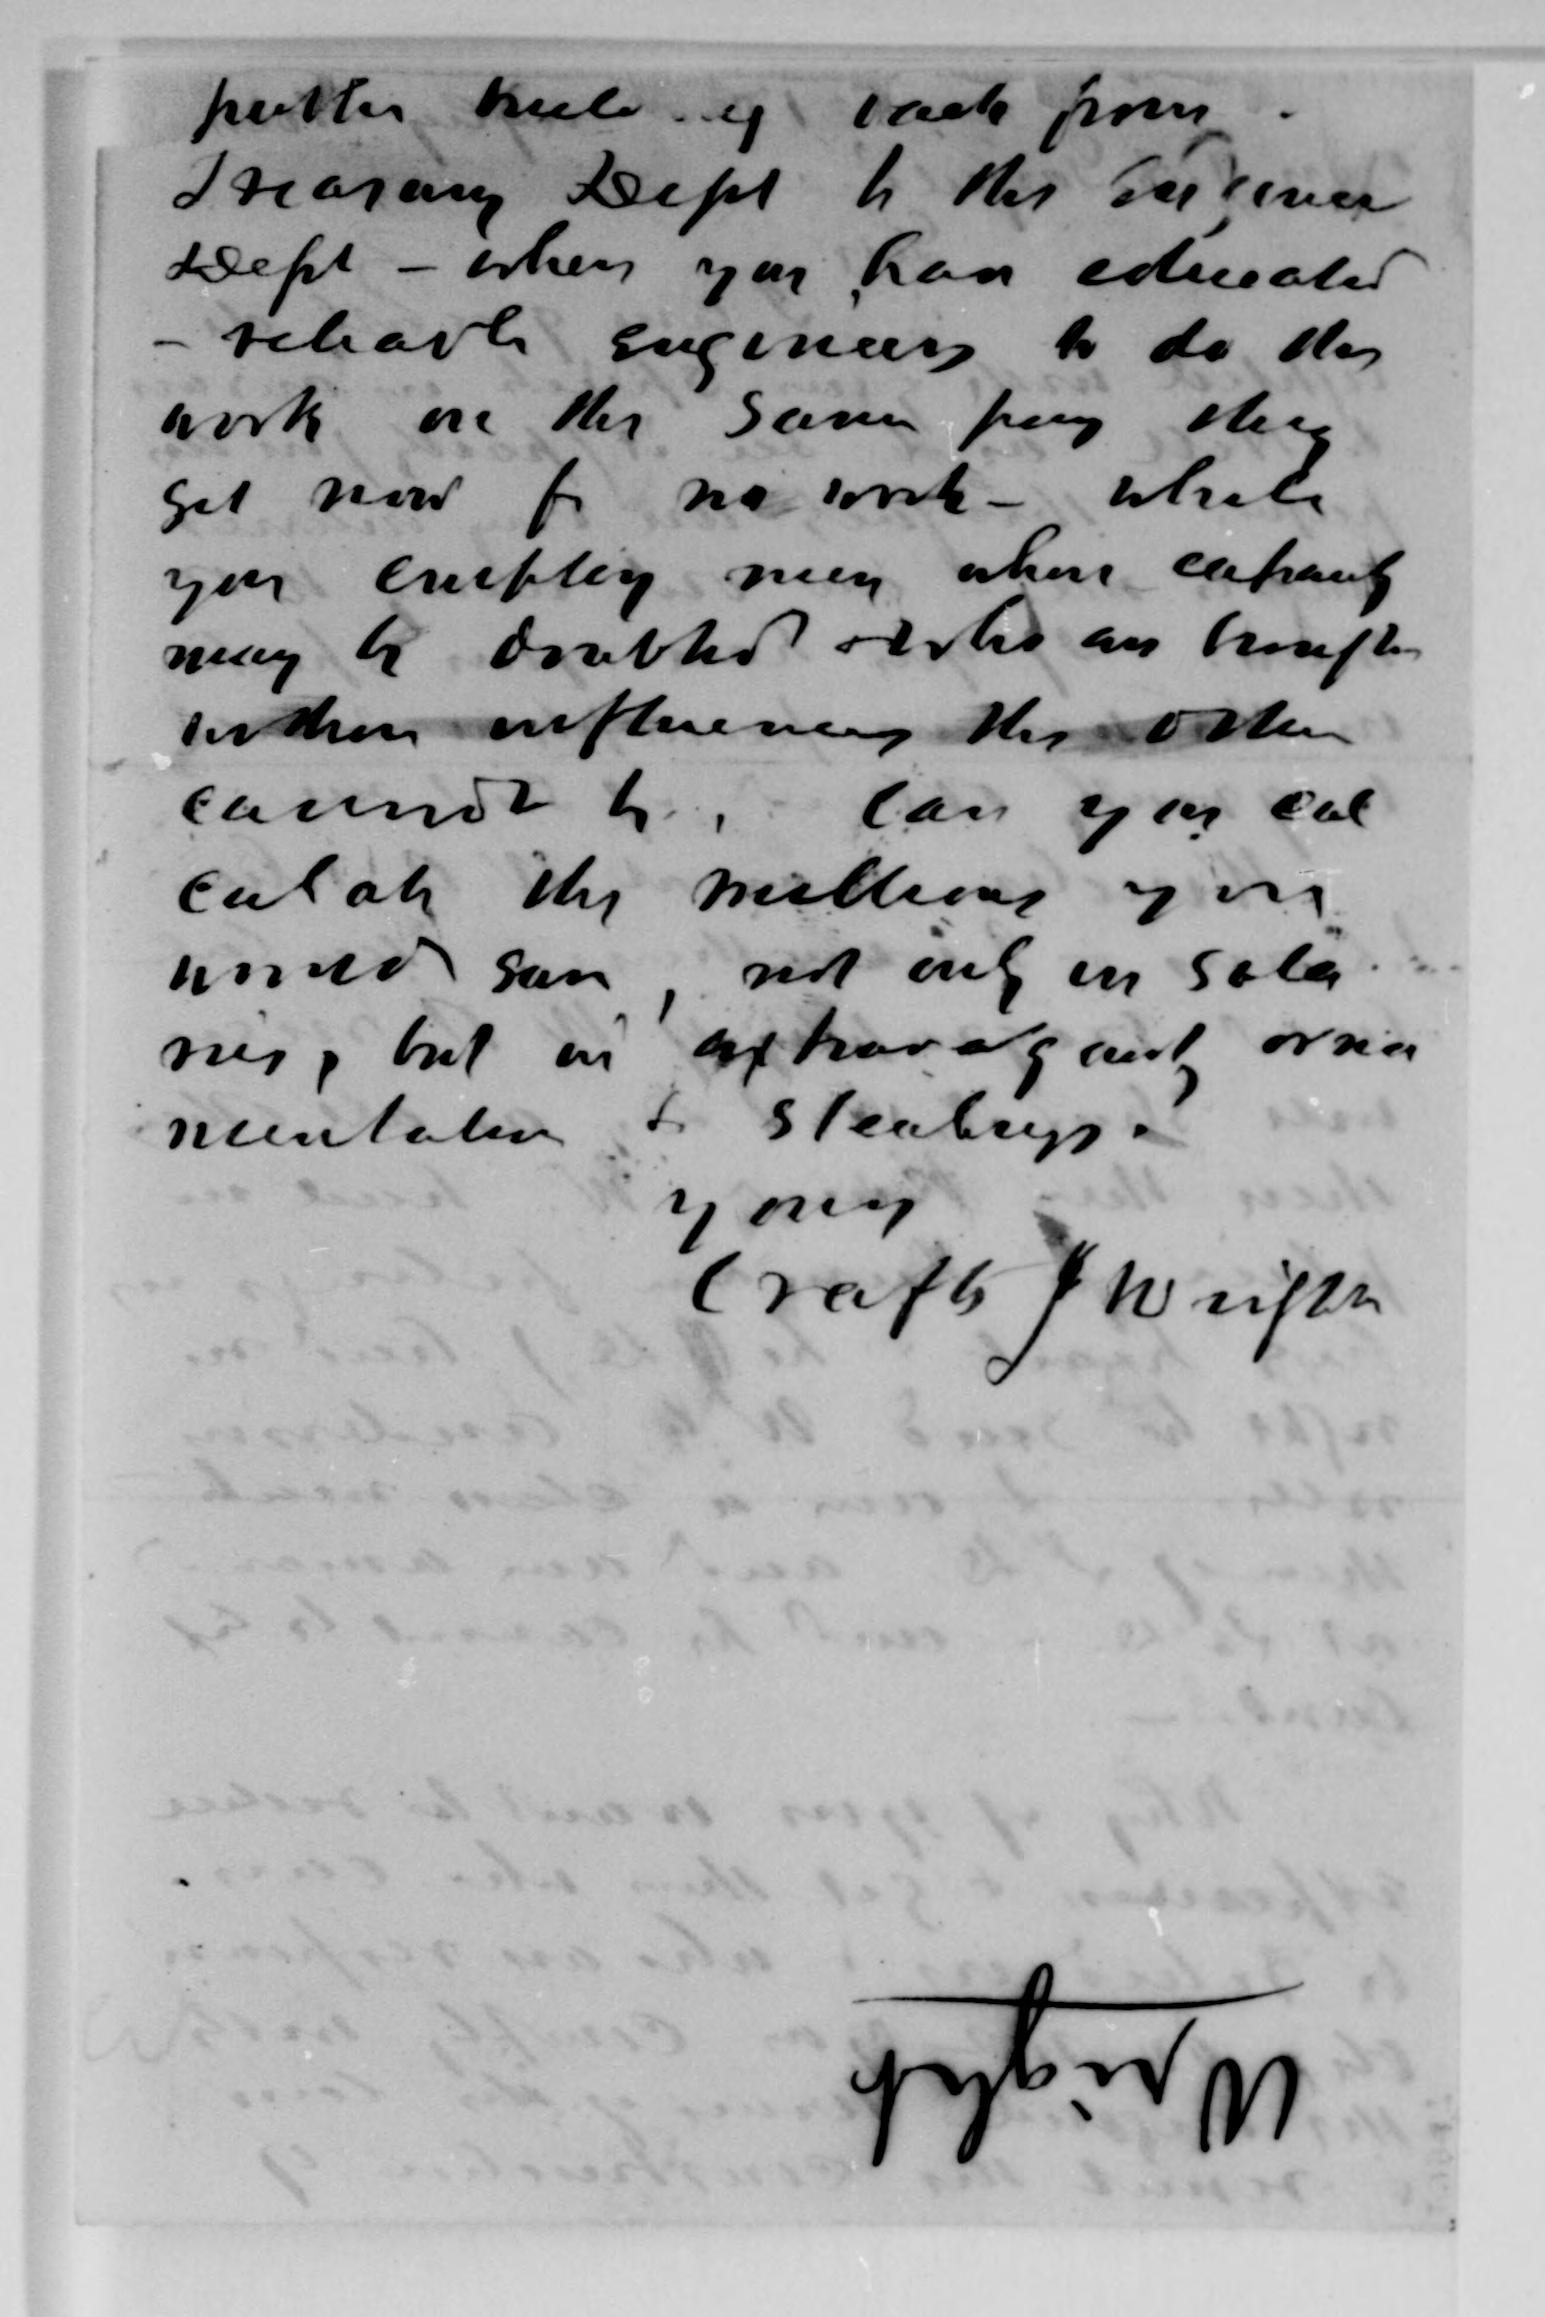 public buildings back from
Treasury Dept to the Engineer
Dept – where you have educated
– reliable engineers to do the
work on the same pay they
get now for no work – while
you employ men whose capacity
may be doubted & who are brought
within influences the other
cannot be. Can you cal
culate the millions you
would save, not only in sala
ries, but in extravagant orna
mentation & stealings.
yours
Crafts J Wright
Wright